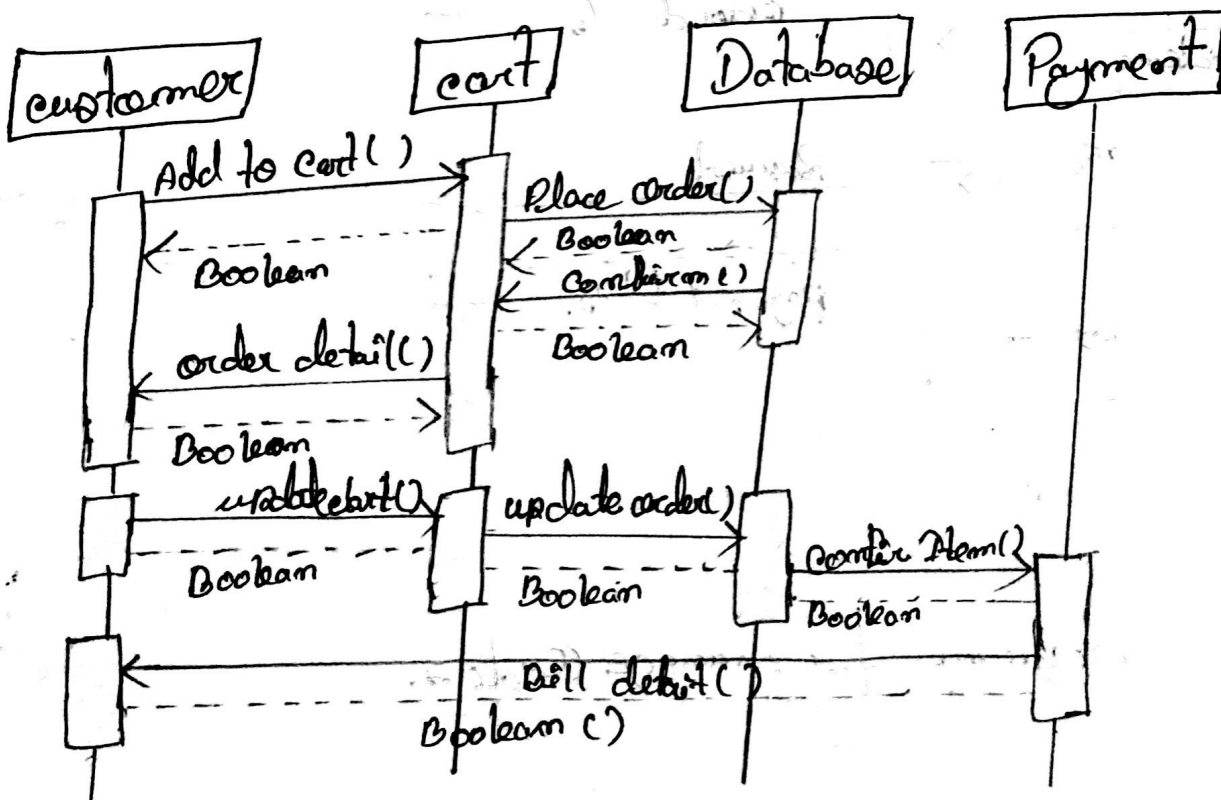 customer
cart
Database
Payment
Add to Cart()
Place order()
Boolean
Boolean
Confirm()
Boolean
order detail()
Boolean
updatecart()
update order()
Boolean
Boolean
Confir Item()
Boolean
Bill detail()
Boolean ()